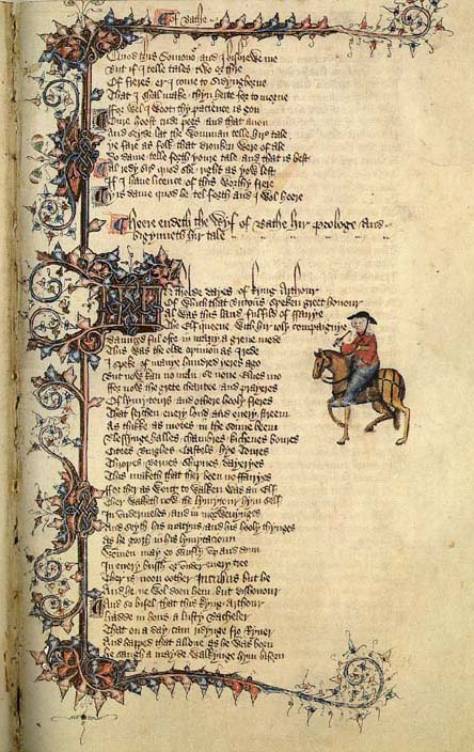 Of Bathe
Quod this Somono and I bishrewe me
But if I telle tales two or thre
Of freres er I come to Sidyngborne
That I shal make thyn herte for to morne
ffor wel I woot thy pacience is gon
Oure hoost cride pees and that anon
And seyde lat the womman telle hire tale
Ye fare as folk that dronken were of ale
Do dame telle forth youre tale and that is best
Al redy sire quod she right as yow lest
If I haue licence of this worthy frere
Yis dame quod he tel forth and I wol heere
Heere endeth the Wyf of Bathe hir prologe And
bigynneth hir tale
In tholde dayes of kyng Arthour
Of which that Britons speken greet honour
Al was this land fulfild of ffairye
The Elf queene with hir ioly compaignye
Daunced ful ofte in many a grene mede
This was the olde opinion as I rede
I speke of manye hundred yeres ago
But now kan no man se none Elues mo
ffor now the grete charitee and prayeres
Of lymytours and othere hooly freres
That serchen euery lond and euery streem
As thikke as motes in the sonne beem
Blessynge halles chambres kichenes boures
Citees Burghes Castels hye Toures
Thropes Bernes shipnes dayeryes
This maketh that ther been no ffairyes
ffor ther as wont to walken was an Elf
Ther walketh now the lymytour hym self
In vndermeles and in morwenynges
And seyth his matyns and his hooly thynges
As he gooth in his lymytacioun
Wommen may go saufly vp and doun
In euery bussh or vnder euery tree
Ther is noon oother Incubus but he
And he ne wol doon hem but dishonour
And so bifel that this kyng Arthour
Hadde in hous a lusty Bacheler
That on a day cam ridynge fro Ryuer
And happed that allone as he was born
He saugh a mayde walkynge hym biforn